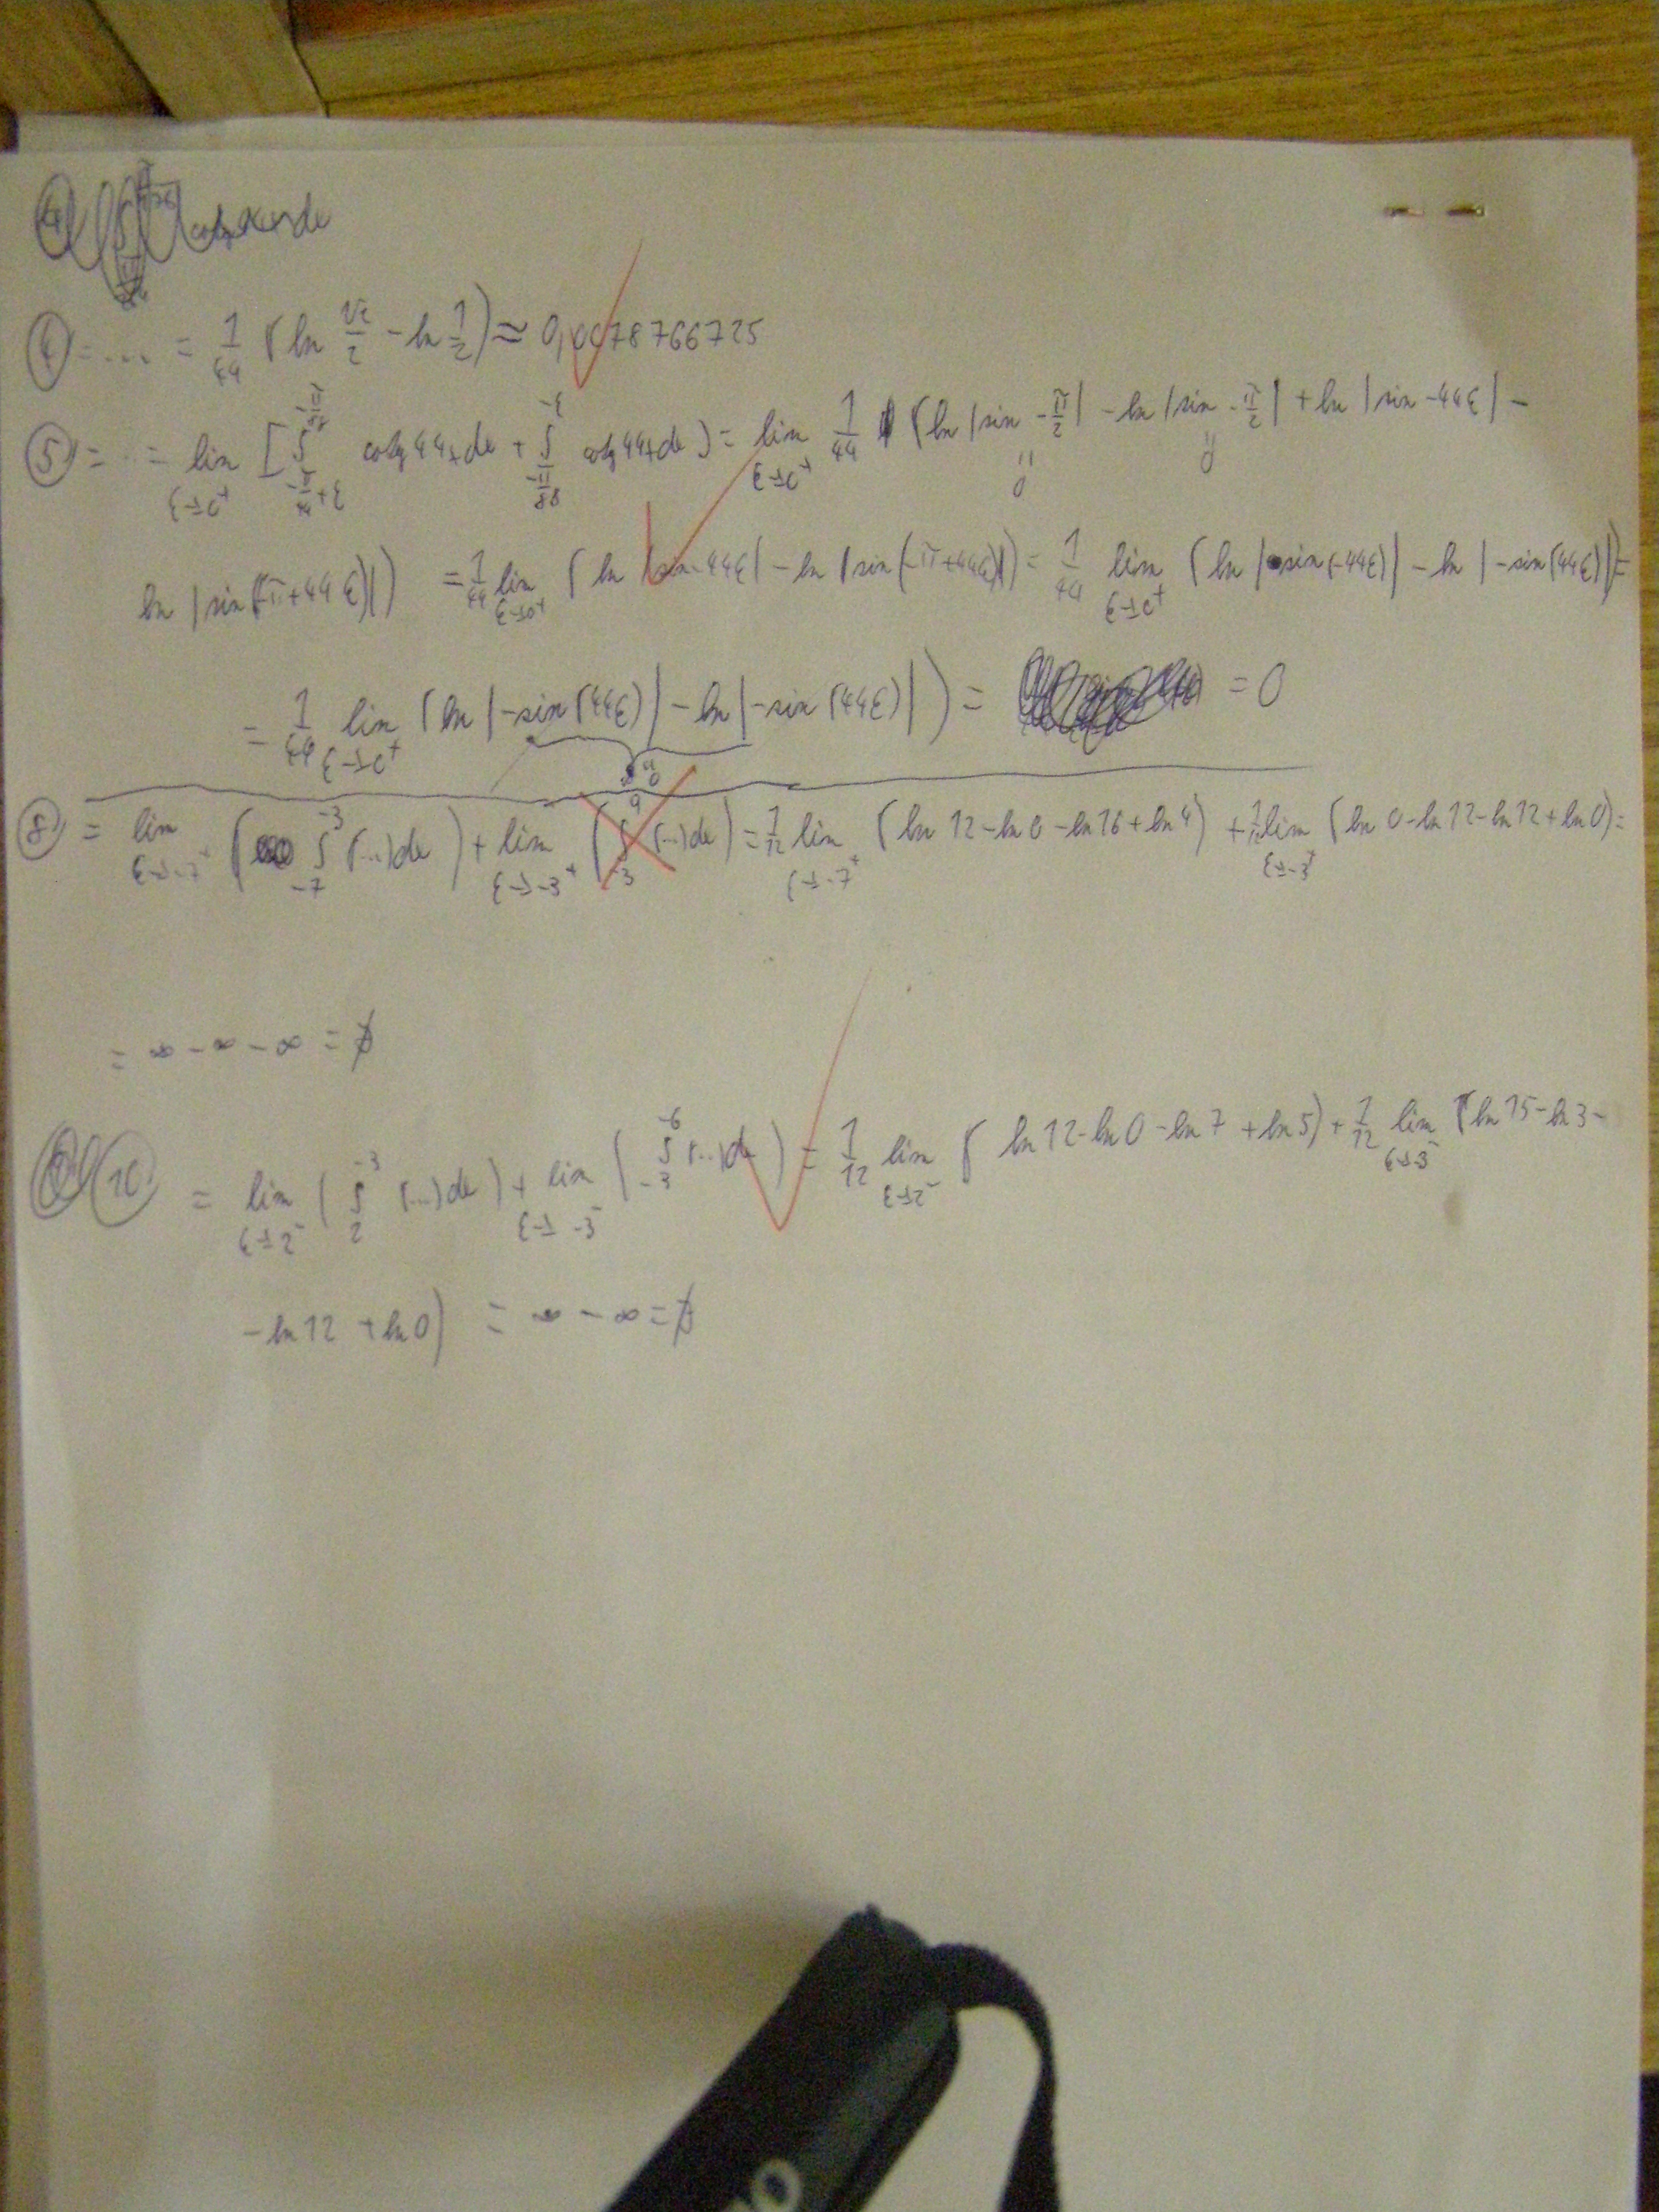 ④ = ... = 1/44 (ln √2/2 - ln 1/2) ≈ 0,0078766725
⑤ = ... = lim ε→0⁺ [∫_{-π/44+ε}^{-π/88} cotg 44x dx + ∫_{-π/88}^{-ε} cotg 44x dx) = lim ε→0⁺ 1/44 (ln |sin -π/2| - ln |sin -π/2| + ln |sin -44ε| -
0 0
ln |sin(-π+44ε)|) = 1/44 lim ε→0⁺ (ln |sin -44ε| - ln |sin(-π+44ε)|) = 1/44 lim ε→0⁺ (ln |sin(-44ε)| - ln |-sin(44ε)|) =
= 1/44 lim ε→0⁺ (ln |-sin(44ε)| - ln |-sin(44ε)|) = = 0
0
⑧ = lim ε→-7⁺ (∫_{-7}^{-3} (...)dx) + lim ε→-3⁺ (∫_{-3}^{9} (...)dx) = 1/12 lim ε→-7⁺ (ln 12 - ln 0 - ln 16 + ln 4) + 1/12 lim ε→-3⁺ (ln 0 - ln 12 - ln 12 + ln 0) =
= ∞ - ∞ - ∞ = ∅
⑩ = lim ε→2⁻ (∫_{2}^{-3} (...)dx) + lim ε→-3⁻ (∫_{-3}^{-6} (...)dx) = 1/12 lim ε→2⁻ (ln 12 - ln 0 - ln 7 + ln 5) + 1/12 lim ε→-3⁻ (ln 15 - ln 3 -
- ln 12 + ln 0) = ∞ - ∞ = ∅